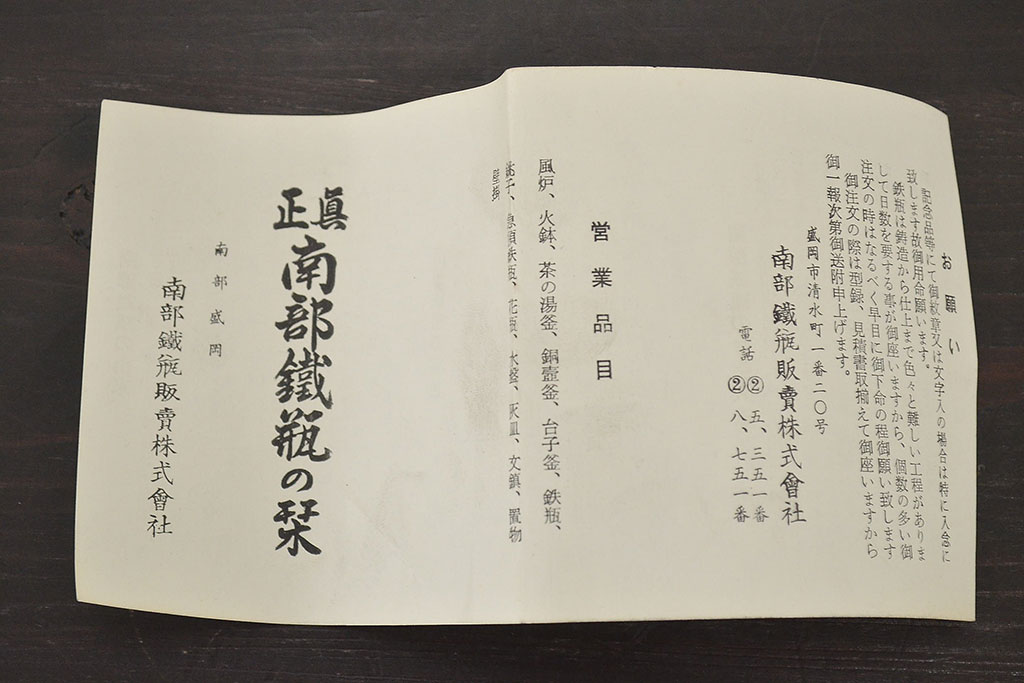 お願い
記念品等にて御紋章又は文字入の場合は特に入念に
致します故御用命願います。
鉄瓶は鋳造から仕上まで色々と難しい工程がありま
して日数を要する事が御座いますから、個数の多い御
注文の時はなるべく早目に御下命の程御願い致します
御注文の際は型録、見積書取揃えて御座いますから
御一報次第御送附申上げます。
盛岡市清水町一番二〇号
南部鐵瓶販賣株式會社
電話 ② 五、三五一番
② 八、七五一番
営業品目
風炉、火鉢、茶の湯釜、銅壷釜、台子釜、鉄瓶、
銚子、急須鉄瓶、花瓶、水盤、灰皿、文鎮、置物
壁掛
眞正
南部鐵瓶の栞
南部盛岡
南部鐵瓶販賣株式會社